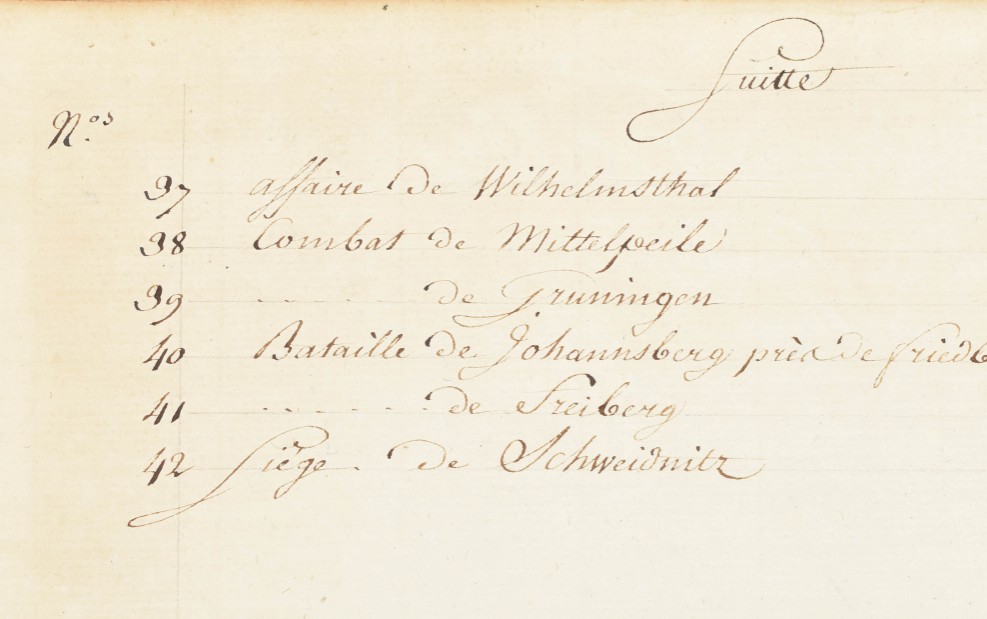 Suitte
N.os
37 affaire de Wilhelmsthal
38 Combat de Mittelpeile
39 - - - - - de Gruningen
40 Bataille de Johannsberg près de friedb
41 - - - - - - - de Freiberg
42 Siège de Schweidnitz